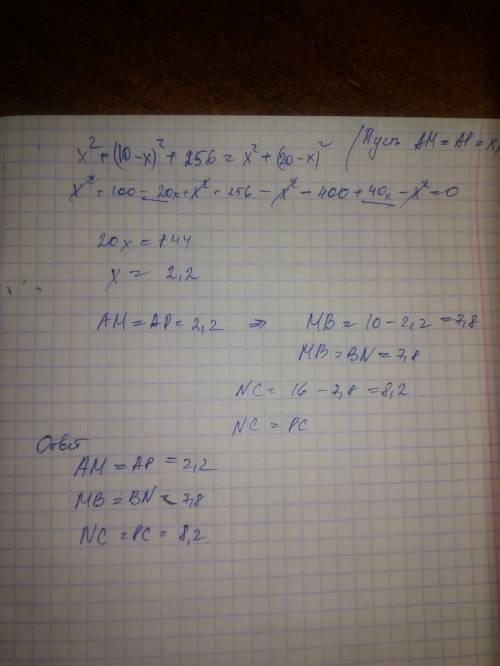 x² + (10-x)² + 256 = x² + (20-x)² (Пусть AM = AP = x)
x² + 100 - 20x + x² + 256 - x² - 400 + 40x - x² = 0
20x = 144
x = 2,2
AM = AP = 2,2 ⇒ MB = 10 - 2,2 = 7,8
MB = BN = 7,8
NC = 16 - 7,8 = 8,2
NC = PC
Ответ
AM = AP = 2,2
MB = BN = 7,8
NC = PC = 8,2